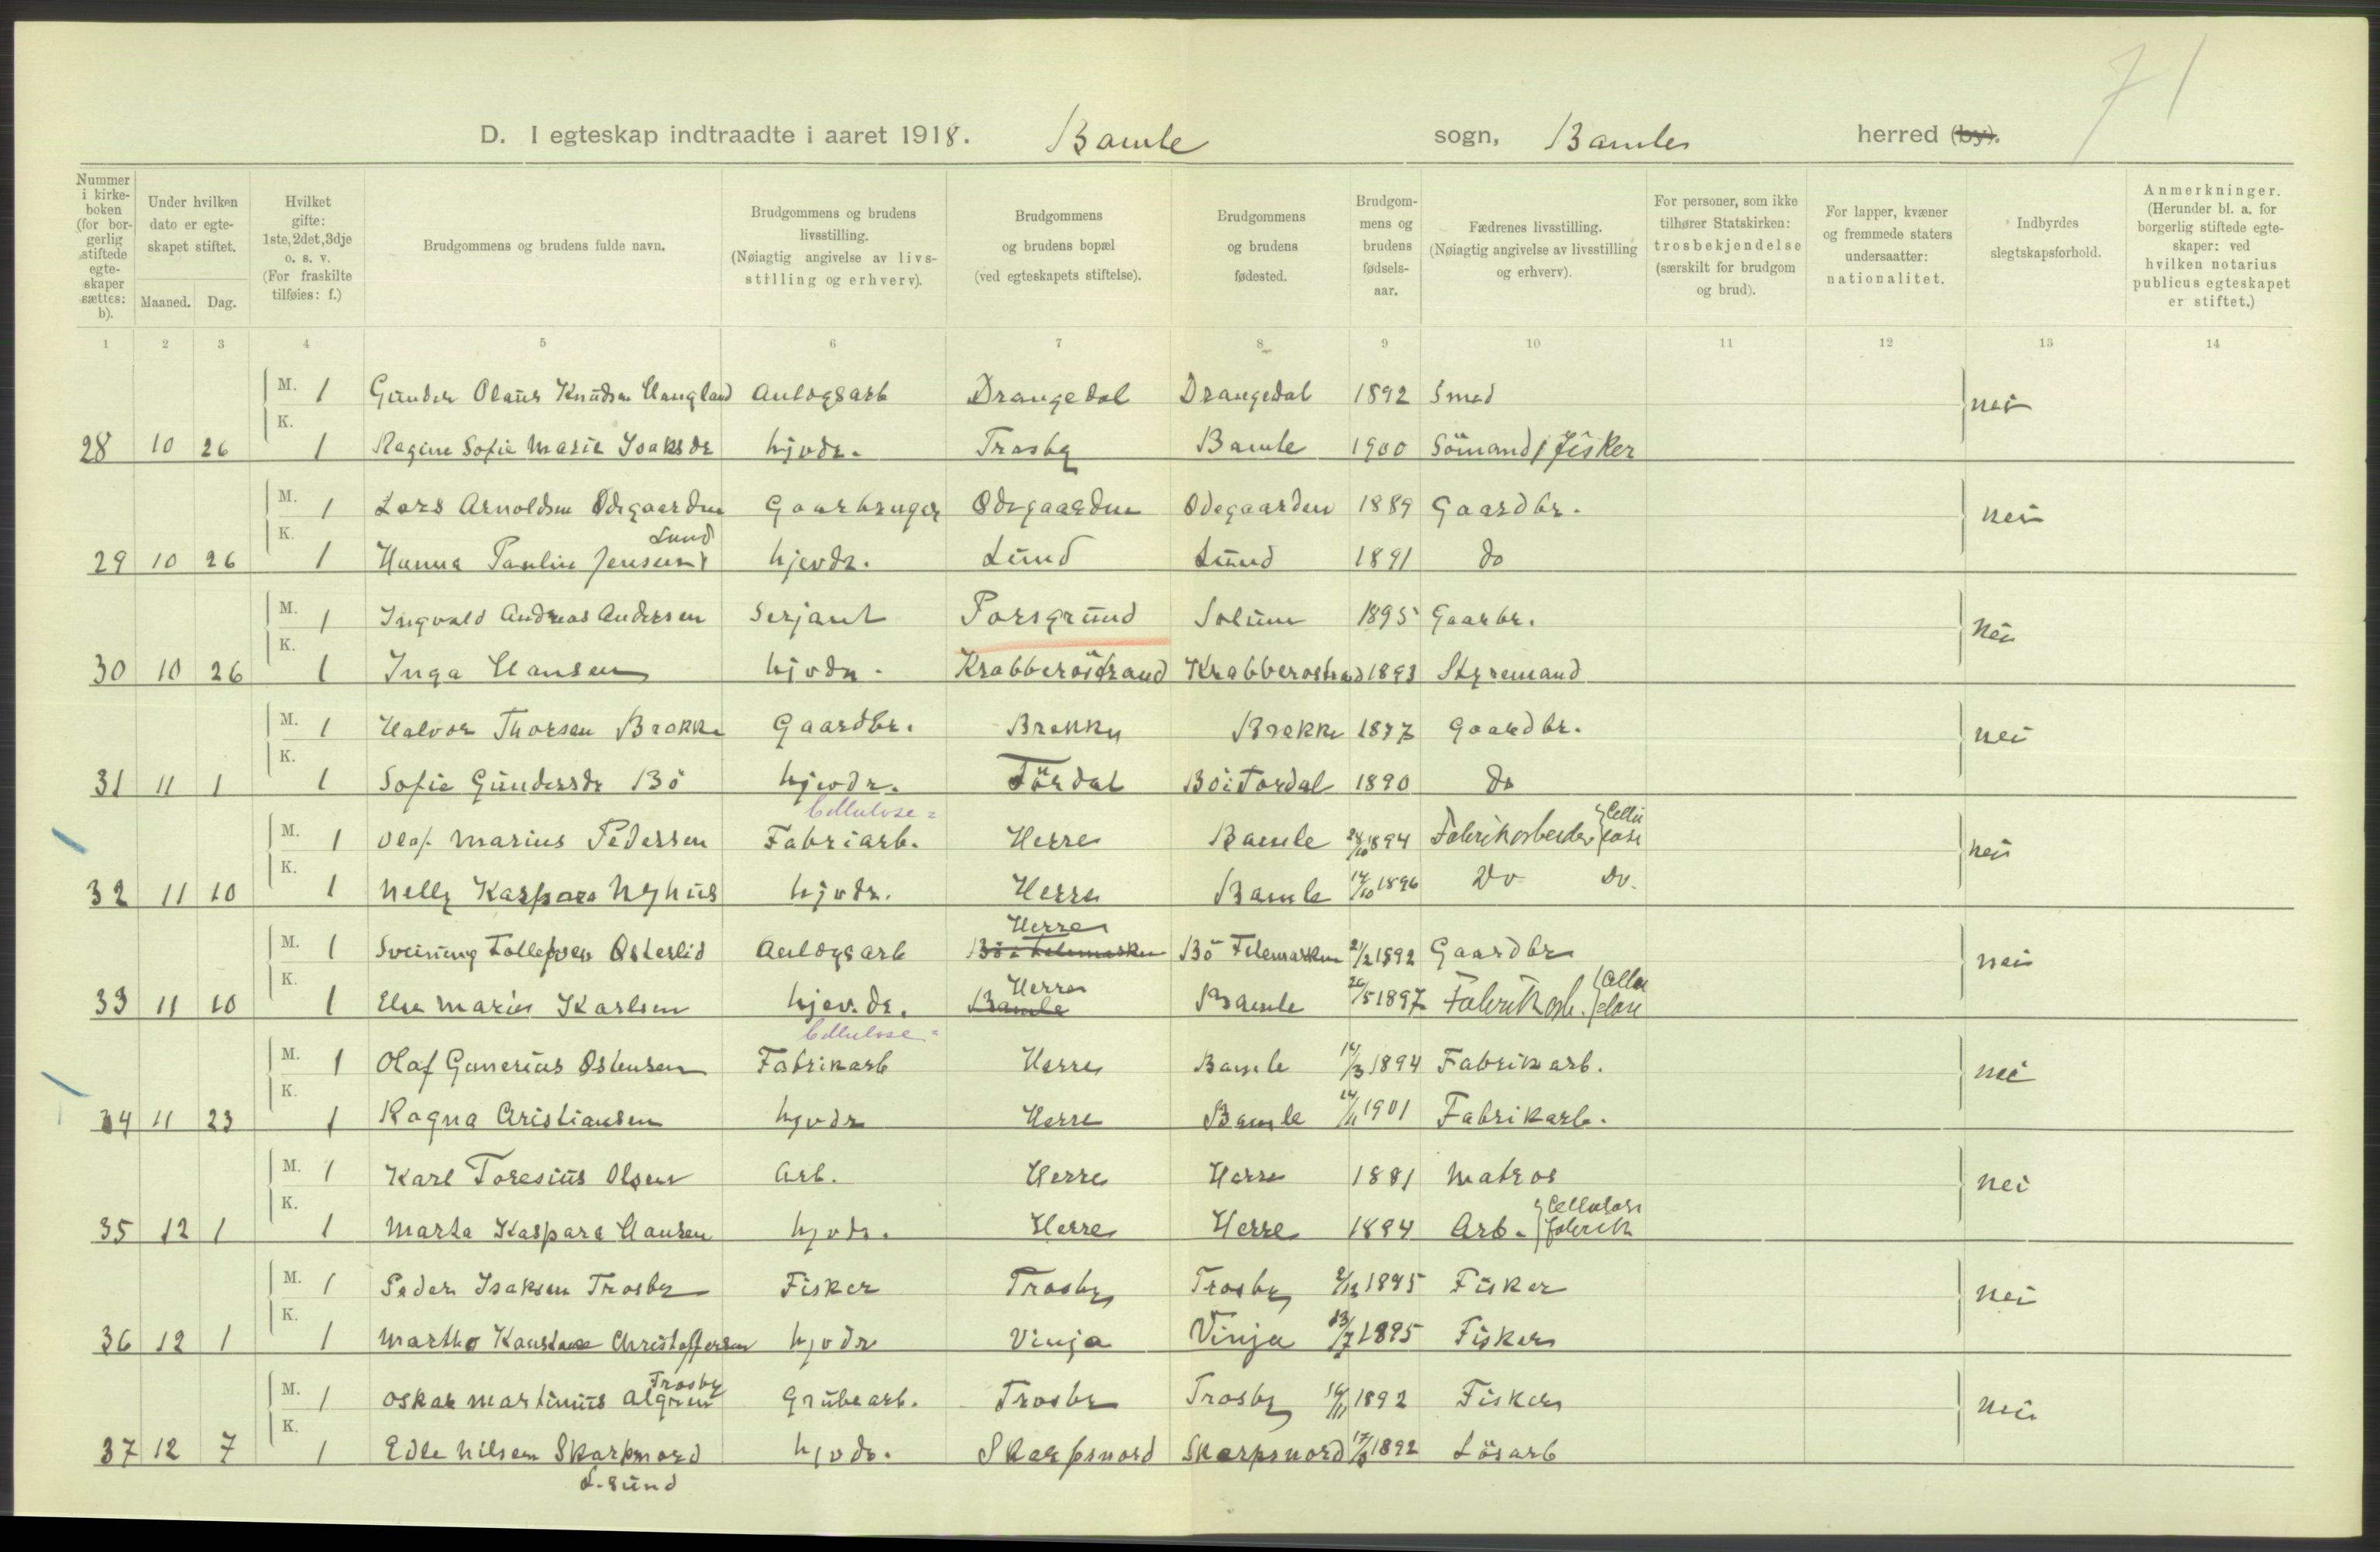 71
D. I egteskap indtraadte i aaret 1918. Bamle sogn, Bamle herred (by).
Nummer i kirkeboken (for borgerlig stiftede egteskaper sættes: b). Under hvilken dato er egteskapet stiftet. Maaned. Dag. Hvilket gifte: 1ste, 2det, 3dje o. s. v. (For fraskilte tilføies: f.) Brudgommens og brudens fulde navn. Brudgommens og brudens livsstilling. (Nøiagtig angivelse av livsstilling og erhverv). Brudgommens og brudens bopæl (ved egteskapets stiftelse). Brudgommens og brudens fødested. Brudgommens og brudens fødselsaar. Fædrenes livsstilling. (Nøiagtig angivelse av livsstilling og erhverv). For personer, som ikke tilhører Statskirken: trosbekjendelse (særskilt for brudgom og brud). For lapper, kvæner og fremmede staters undersaatter: nationalitet. Indbyrdes slegtskapsforhold. Anmerkninger. (Herunder bl. a. for borgerlig stiftede egteskaper: ved hvilken notarius publicus egteskapet er stiftet.)
1 2 3 4 5 6 7 8 9 10 11 12 13 14
M. 1 Gunder Olaus Knudsen Haugland Anlægsarb Drangedal Drangedal 1892 Smed nei
28 10 26 K. 1 Regine Sofie Marie Isaksdr hjvdr. Trosby Bamle 1900 Sömand / Fisker
M. 1 Lars Arnoldsen Ödegaarden Gaarbruger Ödegaarden Ödegaarden 1889 Gaardbr. nei
Lund
29 10 26 K. 1 Hanna Pauline Jensen hjevdr. Lund Lund 1891 do
M. 1 Ingvald Andreas Andersen Serjant Porsgrund Solum 1895 Gaarbr. nei
30 10 26 K. 1 Inga Hansen hjvdr. Krabberöstrand Krabberostrand 1893 Styremand
M. 1 Halvor Thorsen Brekke Gaardbr. Brekke Brekke 1877 Gaardbr. nei
31 11 1 K. 1 Sofie Gundersdr Bö hjevdr. Tördal Bö i Tordal 1890 do
Cellulose= Cellu
M. 1 Olaf Marius Pedersen Fabriarb. Herre Bamle 28/10 1894 Fabrikarbeider lose nei
32 11 10 K. 1 Nelly Kaspara Nyhus hjvdr. Herre Bamle 14/10 1896 Do Do.
Herre
M. 1 Sveinung Tollefsen Österlid Anlægsarb Bö i Telemarken Bö Telemarken 2/2 1892 Gaardbr nei
Herre Cellu
33 11 10 K. 1 Else Marie Karlsen hjev.dr. Bamle Bamle 26/5 1897 Fabrikarb. lose
Cellulose=
M. 1 Olaf Gunerius Ostensen Fabrikarb Herre Bamle 14/3 1894 Fabrikarb. nei
34 11 23 K. 1 Ragna Cristiansen hjvdr Herre Bamle 1901 Fabrikarb.
M. 1 Karl Toresius Olsen Arb. Herre Herre 1881 Matros nei
Cellulose
35 12 1 K. 1 Marta Kaspara Hansen hjvdr. Herre Herre 1894 Arb. fabrik
M. 1 Peder Isaksen Trosby Fisker Trosby Trosby 2/12 1895 Fisker nei
36 12 1 K. 1 Martha Konstanse Christoffersen hjvdr Vinja Vinja 23/7 1895 Fisker
Trosby
M. 1 Oskar Martinius Algren Grubearb. Trosby Trosby 14/11 1892 Fisker nei
37 12 7 K. 1 Edle Nilsen Skarpenord hjvdr. Skarpsnord Skarpsnord 1892 Lösarb
L.sund